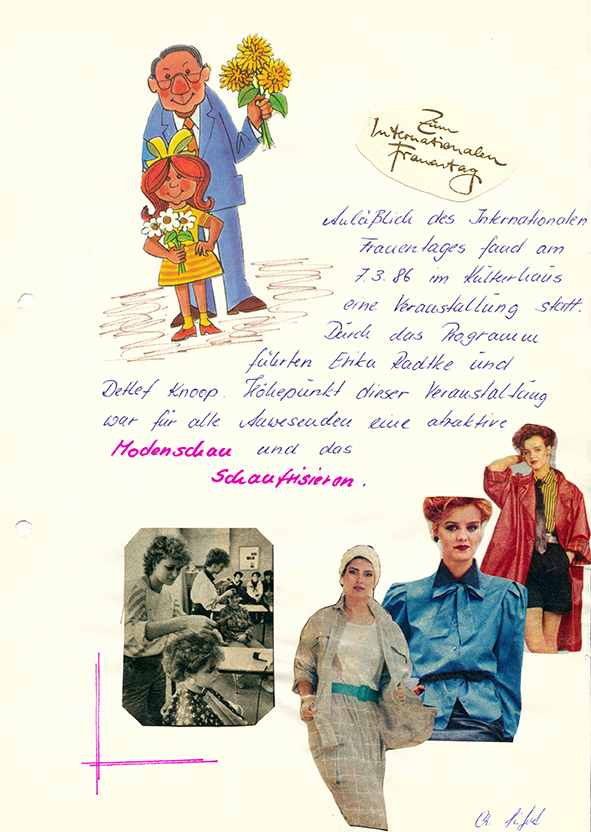 Zum
Internationalen
Frauentag
Anläßlich des Internationalen
Frauentages fand am
7.3.86 im Kulturhaus
eine Veranstaltung statt.
Durch das Programm
führten Erika Radtke und
Detlef Knoop. Höhepunkt dieser Veranstaltung
war für alle Anwesenden eine atraktive
Modenschau und das
Schaufrisieren.